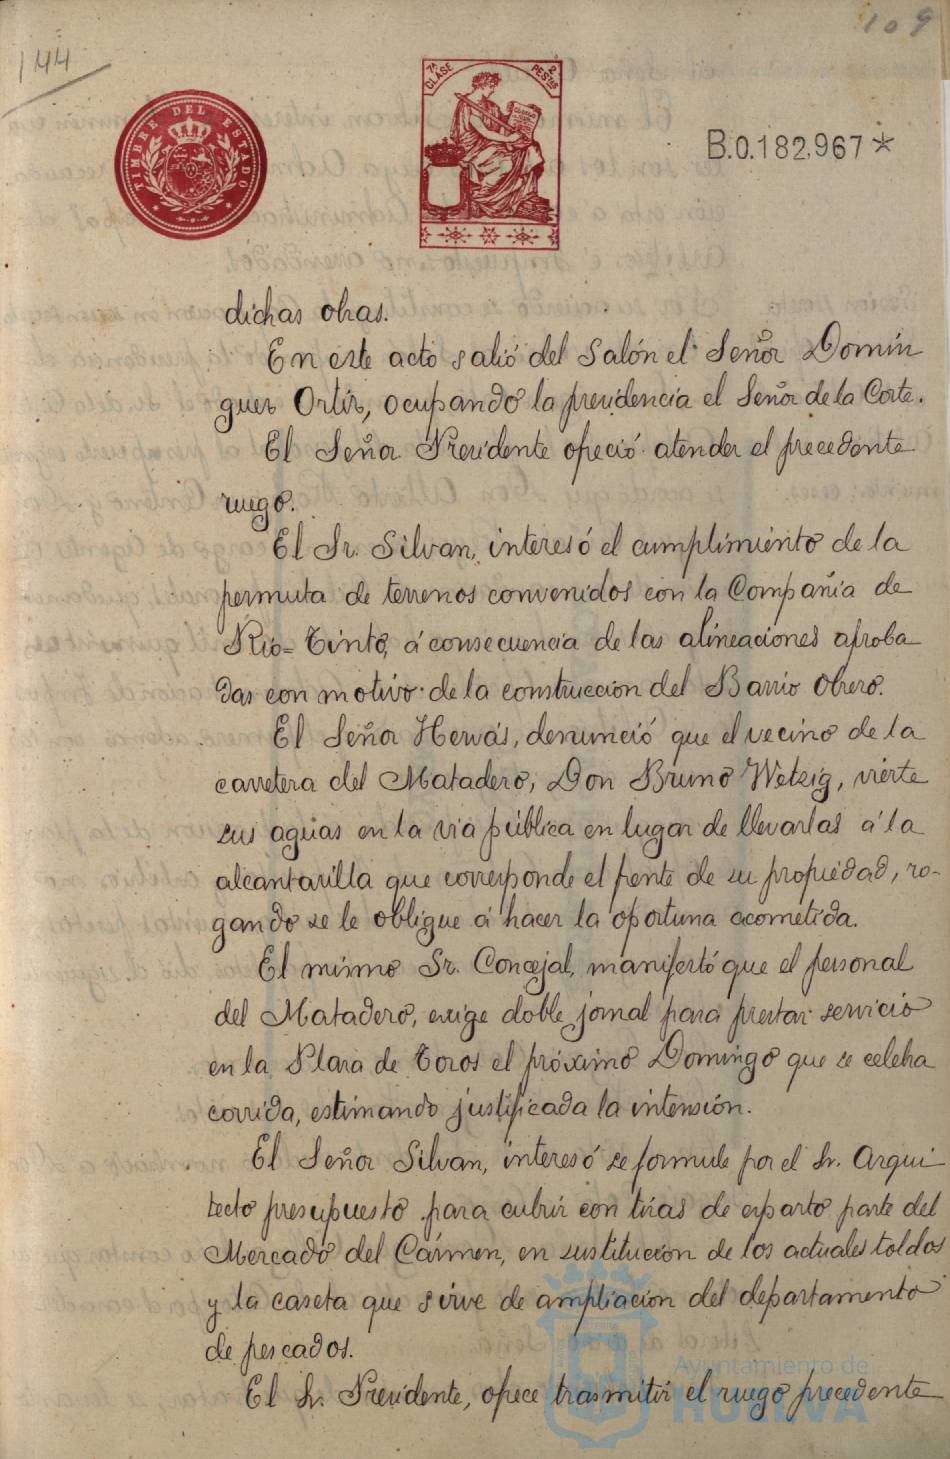 109
144
TIMBRE DEL ESTADO
7ª CLASE
2 PESTAS
B.0.182,967*
dichas obras.
En este acto salió del Salón el Señor Domin
guez Ortiz, ocupando la presidencia el Señor de la Corte.
El Señor Presidente ofreció atender el precedente
ruego.
El Sr. Silvan, interesó el cumplimiento de la
permuta de terrenos convenidos con la Compañia de
Rio=Tinto, á consecuencia de las alineaciones aproba
das con motivo de la construccion del Barrio Obrero.
El Señor Hervás, denunció que el vecino de la
carretera del Matadero, Don Bruno Wetzig, vierte
sus aguas en la via pública en lugar de llevarlas á la
alcantarilla que corresponde el frente de su propiedad, ro-
gando se le obligue á hacer la oportuna acometida.
El mismo Sr. Concejal, manifestó que el personal
del Matadero, exige doble jornal para prestar servicio
en la Plaza de Toros el próximo Domingo que se celebra
corrida, estimando justificada la intensión.
El Señor Silvan, interesó se formule por el Sr. Arqui
tecto presupuesto para cubrir con tiras de esparto parte del
Mercado del Cármen, en sustitucion de los actuales toldos
y la caseta que sirve de ampliacion del departamento
de pescados.
El Sr. Presidente, ofrece trasmitir el ruego precedente
Ayuntamiento de
HUELVA